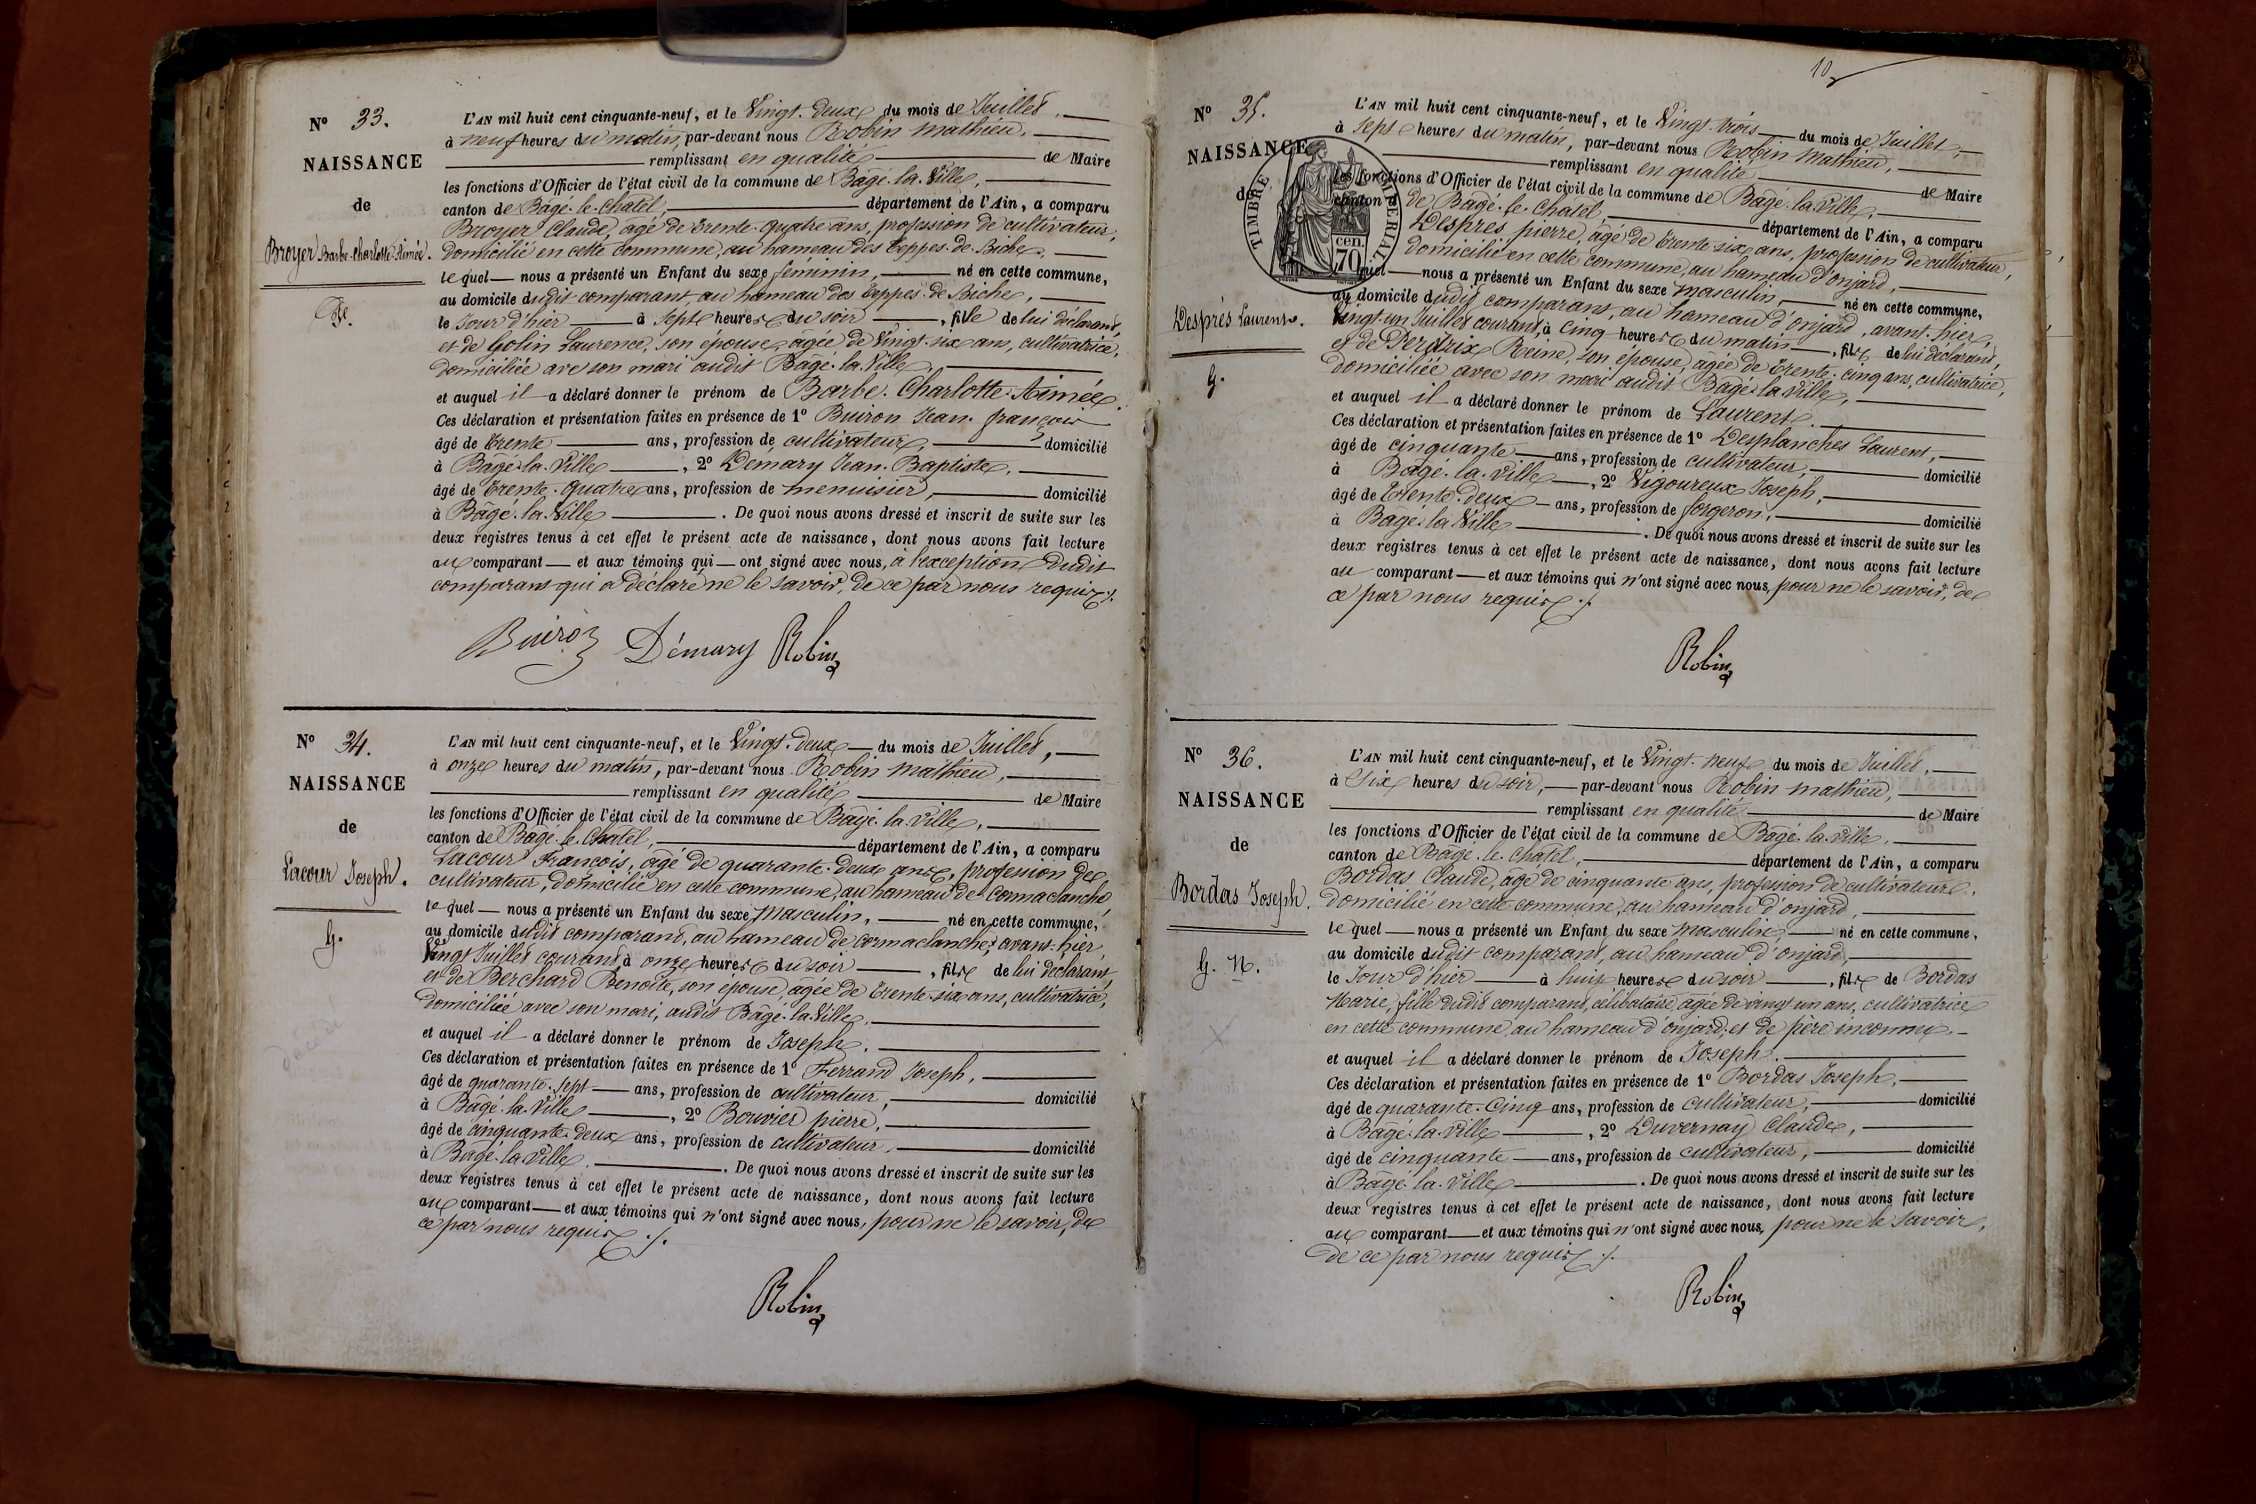 N° 33.
NAISSANCE
de
Broyer Barbe-Charlotte-Aimée.
Fe.
L'AN mil huit cent cinquante-neuf, et le Vingt-deux du mois de Juillet,
à neuf heures du matin, par-devant nous Robin Mathieu,
remplissant en qualité de Maire
les fonctions d'Officier de l'état civil de la commune de Bâgé-la-Ville,
canton de Bâgé-le-Chatel, département de l'Ain, a comparu
Broyer Claude, âgé de trente-quatre ans, profession de cultivateur,
domicilié en cette commune, au hameau des Teppes-de-Biche,
lequel nous a présenté un Enfant du sexe féminin, né en cette commune,
au domicile dudit comparant, au hameau des Teppes-de-Biche,
le Jour d'hier à sept heures du soir, fille de lui déclarant,
et de Gobin Laurence, son épouse, âgée de vingt-six ans, cultivatrice,
domiciliée avec son mari audit Bâgé-la-Ville,
et auquel il a déclaré donner le prénom de Barbe-Charlotte-Aimée.
Ces déclaration et présentation faites en présence de 1° Buiron Jean-françois
âgé de trente ans, profession de cultivateur, domicilié
à Bâgé-la-Ville, 2° Démary Jean-Baptiste,
âgé de trente-quatre ans, profession de menuisier, domicilié
à Bâgé-la-Ville. De quoi nous avons dressé et inscrit de suite sur les
deux registres tenus à cet effet le présent acte de naissance, dont nous avons fait lecture
au comparant et aux témoins qui ont signé avec nous, à l'exception dudit
comparant qui a déclaré ne le savoir, de ce par nous requis ./.
Buiron Démary Robin
N° 34.
NAISSANCE
de
Lacour Joseph.
G.
L'AN mil huit cent cinquante-neuf, et le Vingt-deux du mois de Juillet,
à onze heures du matin, par-devant nous Robin Mathieu,
remplissant en qualité de Maire
les fonctions d'Officier de l'état civil de la commune de Bâgé-la-Ville,
canton de Bâgé-le-Chatel, département de l'Ain, a comparu
Lacour François, âgé de quarante-deux ans, profession de
cultivateur, domicilié en cette commune, au hameau de Cormaclanche,
lequel nous a présenté un Enfant du sexe masculin, né en cette commune,
au domicile dudit comparant, au hameau de Cormaclanche, avant-hier,
Vingt Juillet courant à onze heures du soir, fils de lui déclarant,
et de Berchard Benoîte, son épouse, âgée de trente-six ans, cultivatrice,
domiciliée avec son mari, audit Bâgé-la-Ville,
et auquel il a déclaré donner le prénom de Joseph.
Ces déclaration et présentation faites en présence de 1° Ferrand Joseph,
âgé de quarante-sept ans, profession de cultivateur, domicilié
à Bâgé-la-Ville, 2° Bouvier pierre,
âgé de cinquante-deux ans, profession de cultivateur, domicilié
à Bâgé-la-Ville. De quoi nous avons dressé et inscrit de suite sur les
deux registres tenus à cet effet le présent acte de naissance, dont nous avons fait lecture
au comparant et aux témoins qui n'ont signé avec nous, pour ne le savoir, de
ce par nous requis ./.
Robin
10
N° 35.
NAISSANCE
de
Després Laurent.
G.
TIMBRE IMPERIAL
cen.
70
L'AN mil huit cent cinquante-neuf, et le Vingt-trois du mois de Juillet,
à sept heures du matin, par-devant nous Robin Mathieu,
remplissant en qualité de Maire
les fonctions d'Officier de l'état civil de la commune de Bâgé-la-Ville,
canton de Bâgé-le-Chatel, département de l'Ain, a comparu
Després pierre, âgé de trente-six ans, profession de cultivateur,
domicilié en cette commune, au hameau d'onjard,
lequel nous a présenté un Enfant du sexe masculin, né en cette commune,
au domicile dudit comparant, au hameau d'onjard, avant-hier,
Vingt-un Juillet courant, à cinq heures du matin, fils de lui déclarant,
et de Perdrix Reine, son épouse, âgée de trente-cinq ans, cultivatrice,
domiciliée avec son mari audit Bâgé-la-Ville,
et auquel il a déclaré donner le prénom de Laurent.
Ces déclaration et présentation faites en présence de 1° Desplanches Laurent,
âgé de cinquante ans, profession de cultivateur, domicilié
à Bâgé-la-Ville, 2° Vigoureux Joseph,
âgé de trente-deux ans, profession de forgeron, domicilié
à Bâgé-la-Ville. De quoi nous avons dressé et inscrit de suite sur les
deux registres tenus à cet effet le présent acte de naissance, dont nous avons fait lecture
au comparant et aux témoins qui n'ont signé avec nous, pour ne le savoir, de
ce par nous requis ./.
Robin
N° 36.
NAISSANCE
de
Bordas Joseph.
G. N.
L'AN mil huit cent cinquante-neuf, et le Vingt-neuf du mois de Juillet,
à six heures du soir, par-devant nous Robin Mathieu,
remplissant en qualité de Maire
les fonctions d'Officier de l'état civil de la commune de Bâgé-la-Ville,
canton de Bâgé-le-Chatel, département de l'Ain, a comparu
Bordas Claude, âgé de cinquante ans, profession de cultivateur,
domicilié en cette commune, au hameau d'onjard,
lequel nous a présenté un Enfant du sexe masculin, né en cette commune,
au domicile dudit comparant, au hameau d'onjard,
le Jour d'hier à huit heures du soir, fils de Bordas
Marie, fille dudit comparant, célibataire, âgée de vingt un ans, cultivatrice
en cette commune, au hameau d'onjard, et de père inconnu,
et auquel il a déclaré donner le prénom de Joseph.
Ces déclaration et présentation faites en présence de 1° Bordas Joseph,
âgé de quarante-cinq ans, profession de cultivateur, domicilié
à Bâgé-la-Ville, 2° Duvernay Claude,
âgé de cinquante ans, profession de cultivateur, domicilié
à Bâgé-la-Ville. De quoi nous avons dressé et inscrit de suite sur les
deux registres tenus à cet effet le présent acte de naissance, dont nous avons fait lecture
au comparant et aux témoins qui n'ont signé avec nous, pour ne le savoir,
de ce par nous requis ./.
Robin